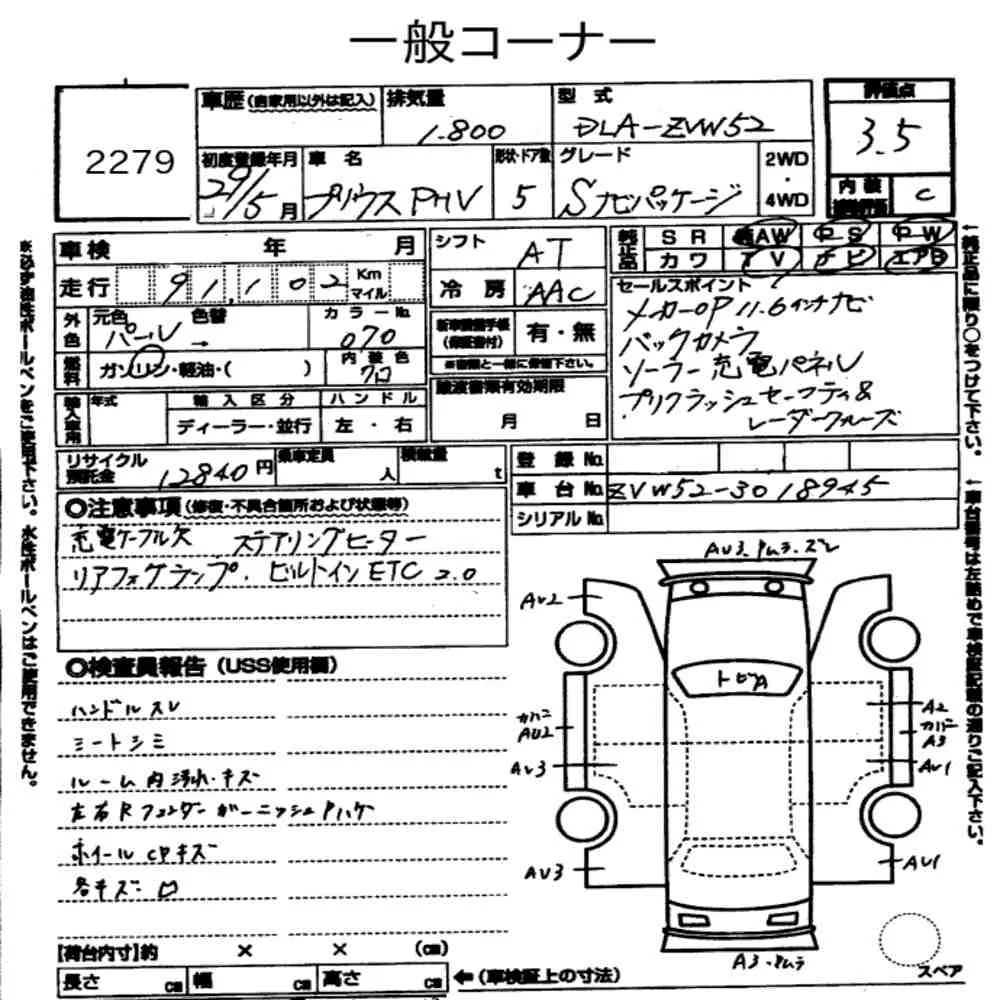 一般コーナー
2279
車歴（自家用以外は記入） 排気量 型式 評価点
1.800 DLA-ZVW52 3.5
初度登録年月 車名 形状・ドア数 グレード 2WD・4WD 内装 C
29/5月 プリウスPHV 5 Sナビパッケージ
車検 年 月 シフト AT 純正品 SR AW PS PW
走行 91,102 Km マイル 冷房 AAC カワ TV ナビ エアB
外色 元色 色替 カラーNo. セールスポイント
パール → 070 新車整備手帳（保証書付） 有・無 メーカーOP 11.6インチナビ
燃料 ガソリン・軽油・（ ） 内装色 クロ ※書類と一緒に保管下さい。 バックカメラ
ソーラー充電パネル
輸入車用 年式 輸入区分 ハンドル 譲渡書類有効期限 プリクラッシュセーフティ&
ディーラー・並行 左・右 月 日 レーダークルーズ
リサイクル預託金 12840円 乗車定員 人 積載量 t 登録No.
車台No. ZVW52-3018945
シリアルNo.
◎注意事項（修復・不具合箇所および状態等）
充電ケーブル欠 ステアリングヒーター
リアフォグランプ. ビルトインETC 2.0
◎検査員報告（USS使用欄）
ハンドルスレ
シートシミ
ルーム内汚れ・キズ
左右Rフェンダーガーニッシュ Pハゲ
ホイールCPキズ
各キズ
AU3
AU2
トビA
カバー
AU2
A2
カバー
A3
AU3
AU1
AU3
AU1
A3
スペア
【荷台内寸】約 × × （㎝）
長さ ㎝ 幅 ㎝ 高さ ㎝ ←（車検証上の寸法）
※必ず油性ボールペンをご使用下さい。水性ボールペンはご使用できません。
↑純正品に限り○をつけて下さい。
↑車台番号は左詰めで車検証記載の通りご記入下さい。